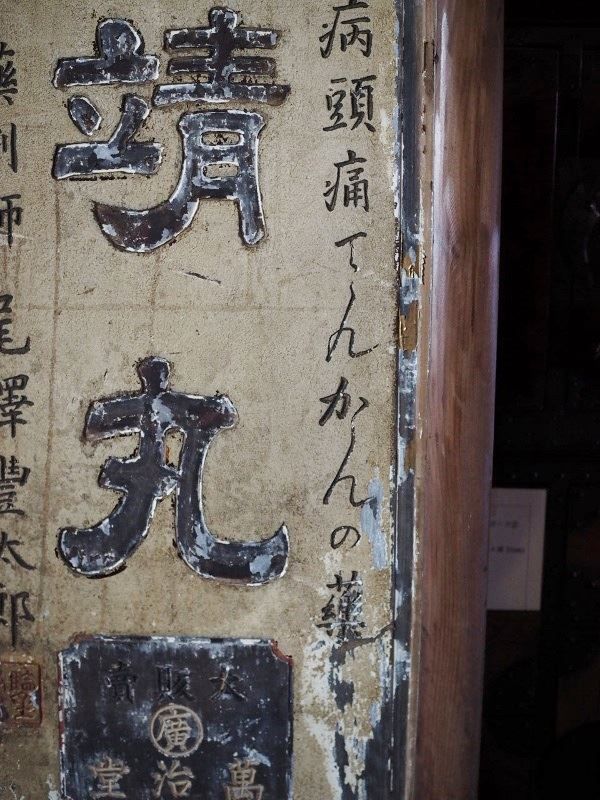 病頭痛てんかんの藥
靖丸
藥剤師 尾澤豐太郎
大販賣
廣
萬治堂